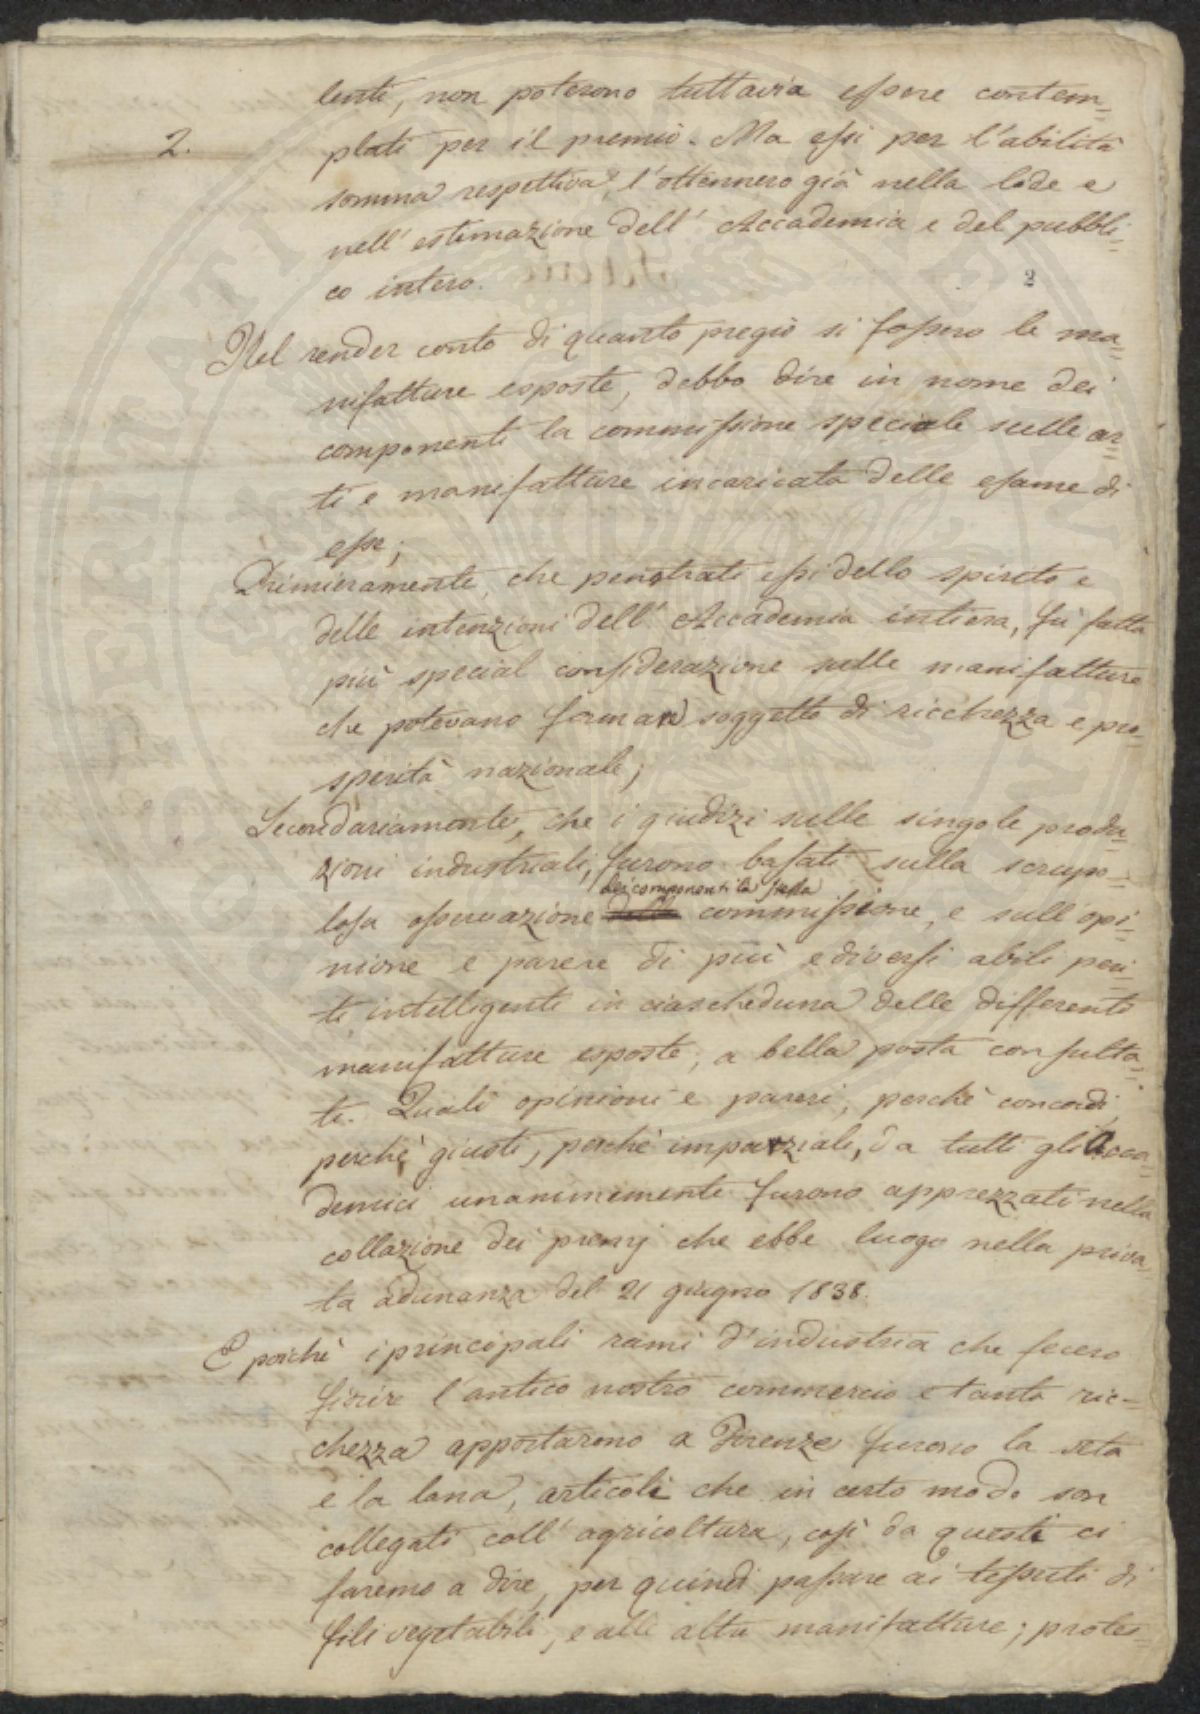 lenti, non poterono tuttavia essere contem=
2.
plati per il premio. Ma essi per l'abilità
somma respettiva, l'ottennero già nella lode e
nell'estimazione dell'Accademia e del pubbli=
co intero.
2
Nel render conto di quanto pregio si fossero le ma=
nifatture esposte, debbo dire in nome dei
componenti la commissione speciale sulle ar=
ti e manifatture incaricata delle esame di
esse;
Primieramente, che penetrati essi dello spirito e
delle intenzioni dell'Accademia intiera, fù fatta
più special considerazione sulle manifatture
che potevano formare soggetto di ricchezza e pro=
sperità nazionale;
Secondariamente, che i giudizi sulle singole produ=
zioni industriali, furono basati sulla scrupo=
dei componenti la stessa
losa osservazione della commissione, e sull'opi=
nione e parere di più e diversi abili peri=
ti intelligenti in ciascheduna delle differenti
manifatture esposte, a bella posta consulta=
ti. Quali opinioni e pareri, perchè concordi,
perchè giusti, perchè imparziali, da tutti gli Acca=
demici unanimemente furono apprezzati nella
collazione dei premj che ebbe luogo nella priva=
ta adunanza del 21 giugno 1838.
E poichè i principali rami d'industria che fecero
fiorire l'antico nostro commercio e tanta ric=
chezza apportarono a Firenze furono la seta
e la lana, articoli che in certo modo son
collegati coll'agricoltura, così da questi ci
faremo a dire, per quindi passare ai tessuti di
fili vegetabili, e alle altre manifatture; protes=